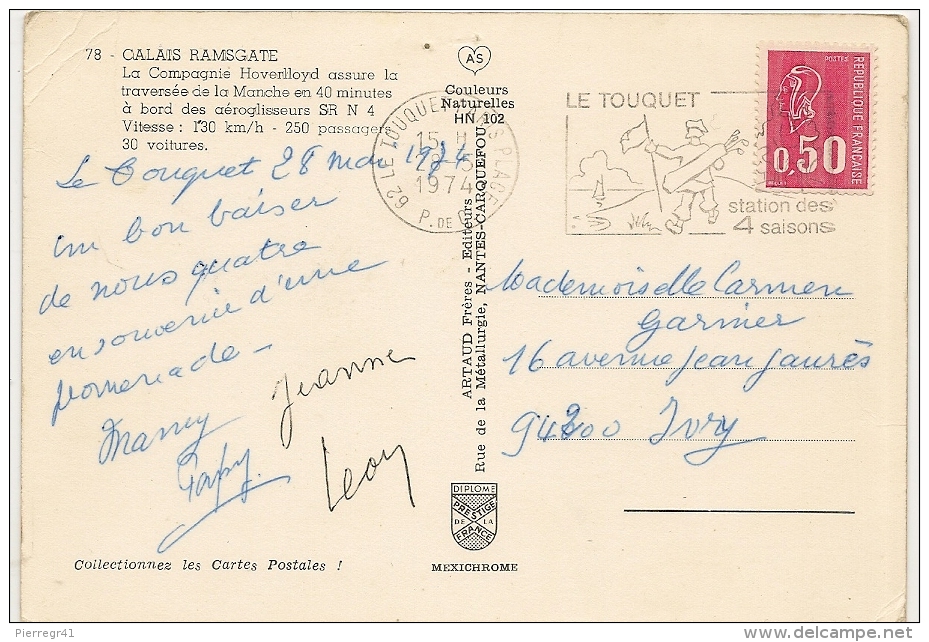 78 - CALAIS RAMSGATE
La Compagnie Hoverlloyd assure la
traversée de la Manche en 40 minutes
à bord des aéroglisseurs SR N 4
Vitesse : 130 km/h - 250 passagers
30 voitures.
Le Touquet 28 mai 1974
un bon baiser
de nous quatre
en souvenir d'une
promenade -
Mamy
Papy.
Jeanne
Leon
Collectionnez les Cartes Postales !
AS
Couleurs
Naturelles
HN 102
ARTAUD Frères - Editeurs
Rue de la Métallurgie, NANTES-CARQUEFOU
DIPLOME
PRESTIGE
DE LA
FRANCE
MEXICHROME
62 LE TOUQUET PARIS PLAGE
15 H
5
1974
P. DE C.
LE TOUQUET
station des
4 saisons
POSTES
0,50
REPUBLIQUE FRANCAISE
Mademoiselle Carmen
Garnier
16 avenue Jean Jaurès
94200 Ivry
Pierregr41
delcampe.net